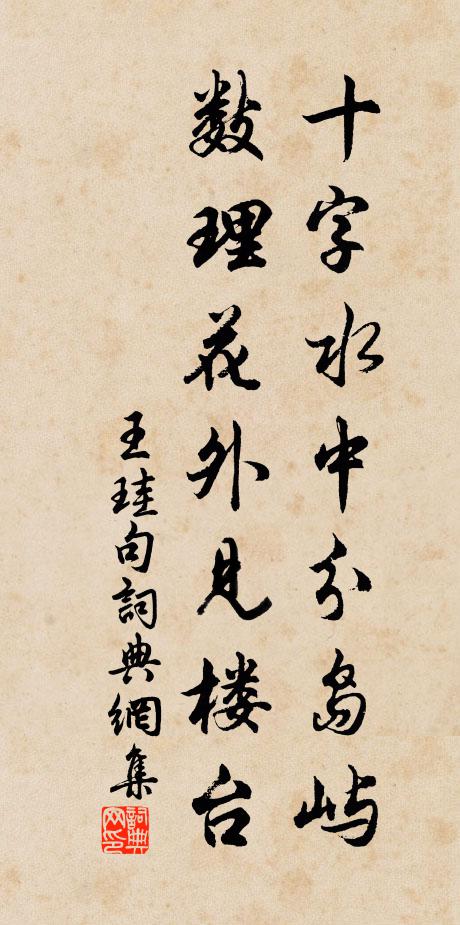 十字水中分岛屿
数理花外见楼台
王珪句詞典網集
詞典网印